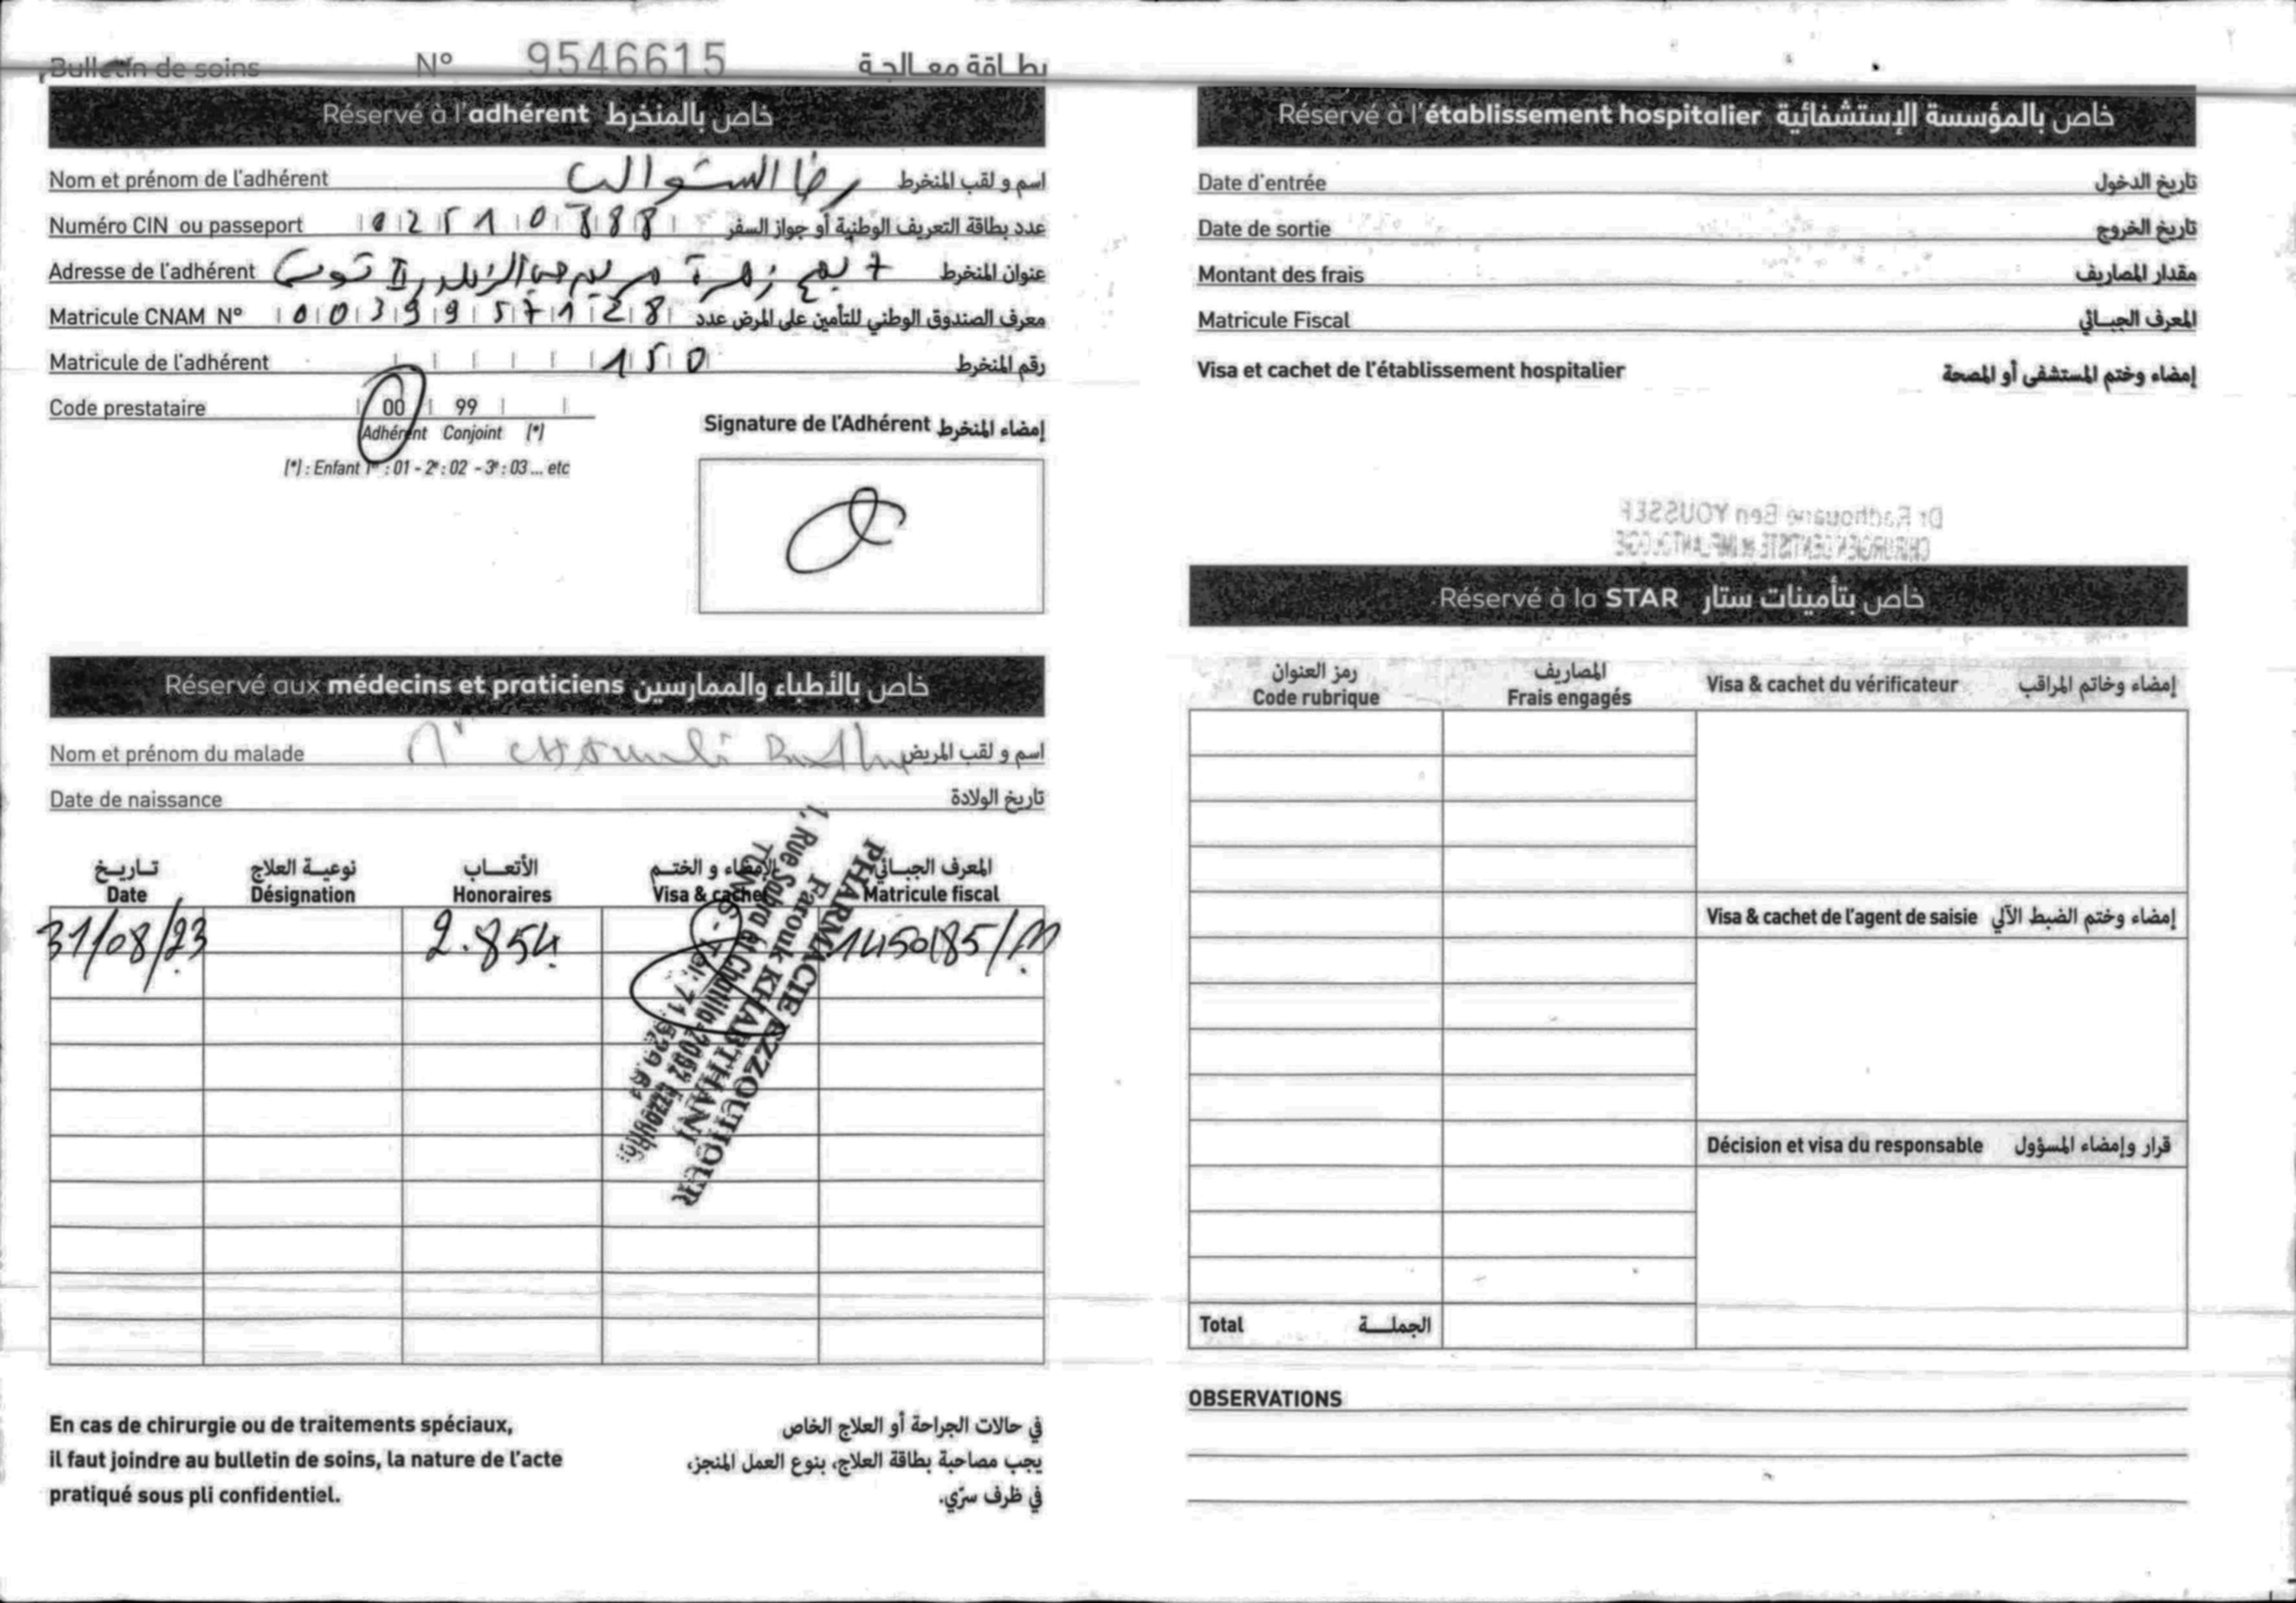 Bulletin de soins N° 9546615 بطاقة معالجة
Réservé à l'adhérent خاص بالمنخرط
Nom et prénom de l'adhérent رضا اسم و لقب المنخرط
Numéro CIN ou passeport 02510788 عدد بطاقة التعريف الوطنية أو جواز السفر
Adresse de l'adhérent 7 نهج زهرة II تونس عنوان المنخرط
Matricule CNAM N° 0039957128 معرف الصندوق الوطني للتأمين على المرض عدد
Matricule de l'adhérent 150 رقم المنخرط
Code prestataire 00 99
Adhérent Conjoint (*)
(*) : Enfant 1er : 01 - 2e : 02 - 3e : 03 ... etc
Signature de l'Adhérent إمضاء المنخرط
Réservé aux médecins et praticiens خاص بالأطباء والممارسين
Nom et prénom du malade اسم و لقب المريض
Date de naissance تاريخ الولادة
تاريخ نوعية العلاج الأتعاب الإمضاء و الختم المعرف الجبائي
Date Désignation Honoraires Visa & cachet Matricule fiscal
31/08/23 2.854 1450185/M
PHARMACIE EZZOUHOUR
Farouk KHABTHANI
1, Rue Sabra et Chatilla-2052 Ezzouhour
TUNIS - Tel: 71.529.61
En cas de chirurgie ou de traitements spéciaux,
il faut joindre au bulletin de soins, la nature de l'acte
pratiqué sous pli confidentiel.
في حالات الجراحة أو العلاج الخاص
يجب مصاحبة بطاقة العلاج، بنوع العمل المنجز،
في ظرف سرّي.
Réservé à l'établissement hospitalier خاص بالمؤسسة الإستشفائية
Date d'entrée تاريخ الدخول
Date de sortie تاريخ الخروج
Montant des frais مقدار المصاريف
Matricule Fiscal المعرف الجبائي
Visa et cachet de l'établissement hospitalier إمضاء وختم المستشفى أو المصحة
Dr Radhouane Ben YOUSSEF
CHIRURGIEN DENTISTE IMPLANTOLOGIE
Réservé à la STAR خاص بتأمينات ستار
رمز العنوان المصاريف
Code rubrique Frais engagés Visa & cachet du vérificateur إمضاء وخاتم المراقب
Visa & cachet de l'agent de saisie إمضاء وختم الضبط الآلي
Décision et visa du responsable قرار وإمضاء المسؤول
Total الجملة
OBSERVATIONS